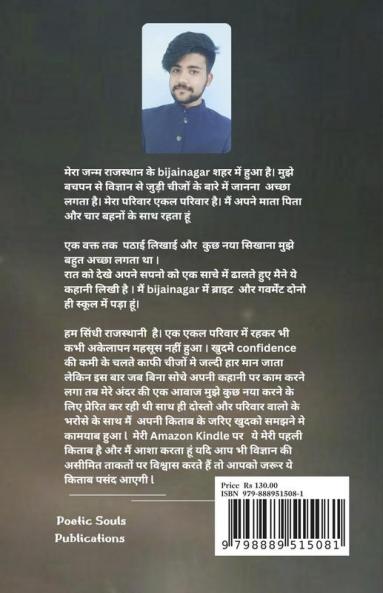 मेरा जन्म राजस्थान के bijainagar शहर में हुआ है। मुझे
बचपन से विज्ञान से जुड़ी चीजों के बारे में जानना अच्छा
लगता है। मेरा परिवार एकल परिवार है। मैं अपने माता पिता
और चार बहनों के साथ रहता हूं
एक वक्त तक पठाई लिखाई और कुछ नया सिखाना मुझे
बहुत अच्छा लगता था ।
रात को देखे अपने सपनो को एक साचे में ढालते हुए मैने ये
कहानी लिखी है । मैं bijainagar में ब्राइट और गवर्मेंट दोनो
ही स्कूल में पड़ा हूं।
हम सिंधी राजस्थानी है। एक एकल परिवार में रहकर भी
कभी अकेलापन महसूस नहीं हुआ । खुदमे confidence
की कमी के चलते काफी चीजों मे जल्दी हार मान जाता
लेकिन इस बार जब बिना सोचे अपनी कहानी पर काम करने
लगा तब मेरे अंदर की एक आवाज मुझे कुछ नया करने के
लिए प्रेरित कर रही थी साथ ही दोस्तो और परिवार वालो के
भरोसे के साथ मैं अपनी किताब के जरिए खुदको समझने मे
कामयाब हुआ l मेरी Amazon Kindle पर ये मेरी पहली
किताब है और मैं आशा करता हूं यदि आप भी विज्ञान की
असीमित ताकतों पर विश्वास करते हैं तो आपको जरूर ये
किताब पसंद आएगी l
Price Rs 130.00
ISBN 979-888951508-1
9 798889 515081
Poetic Souls
Publications